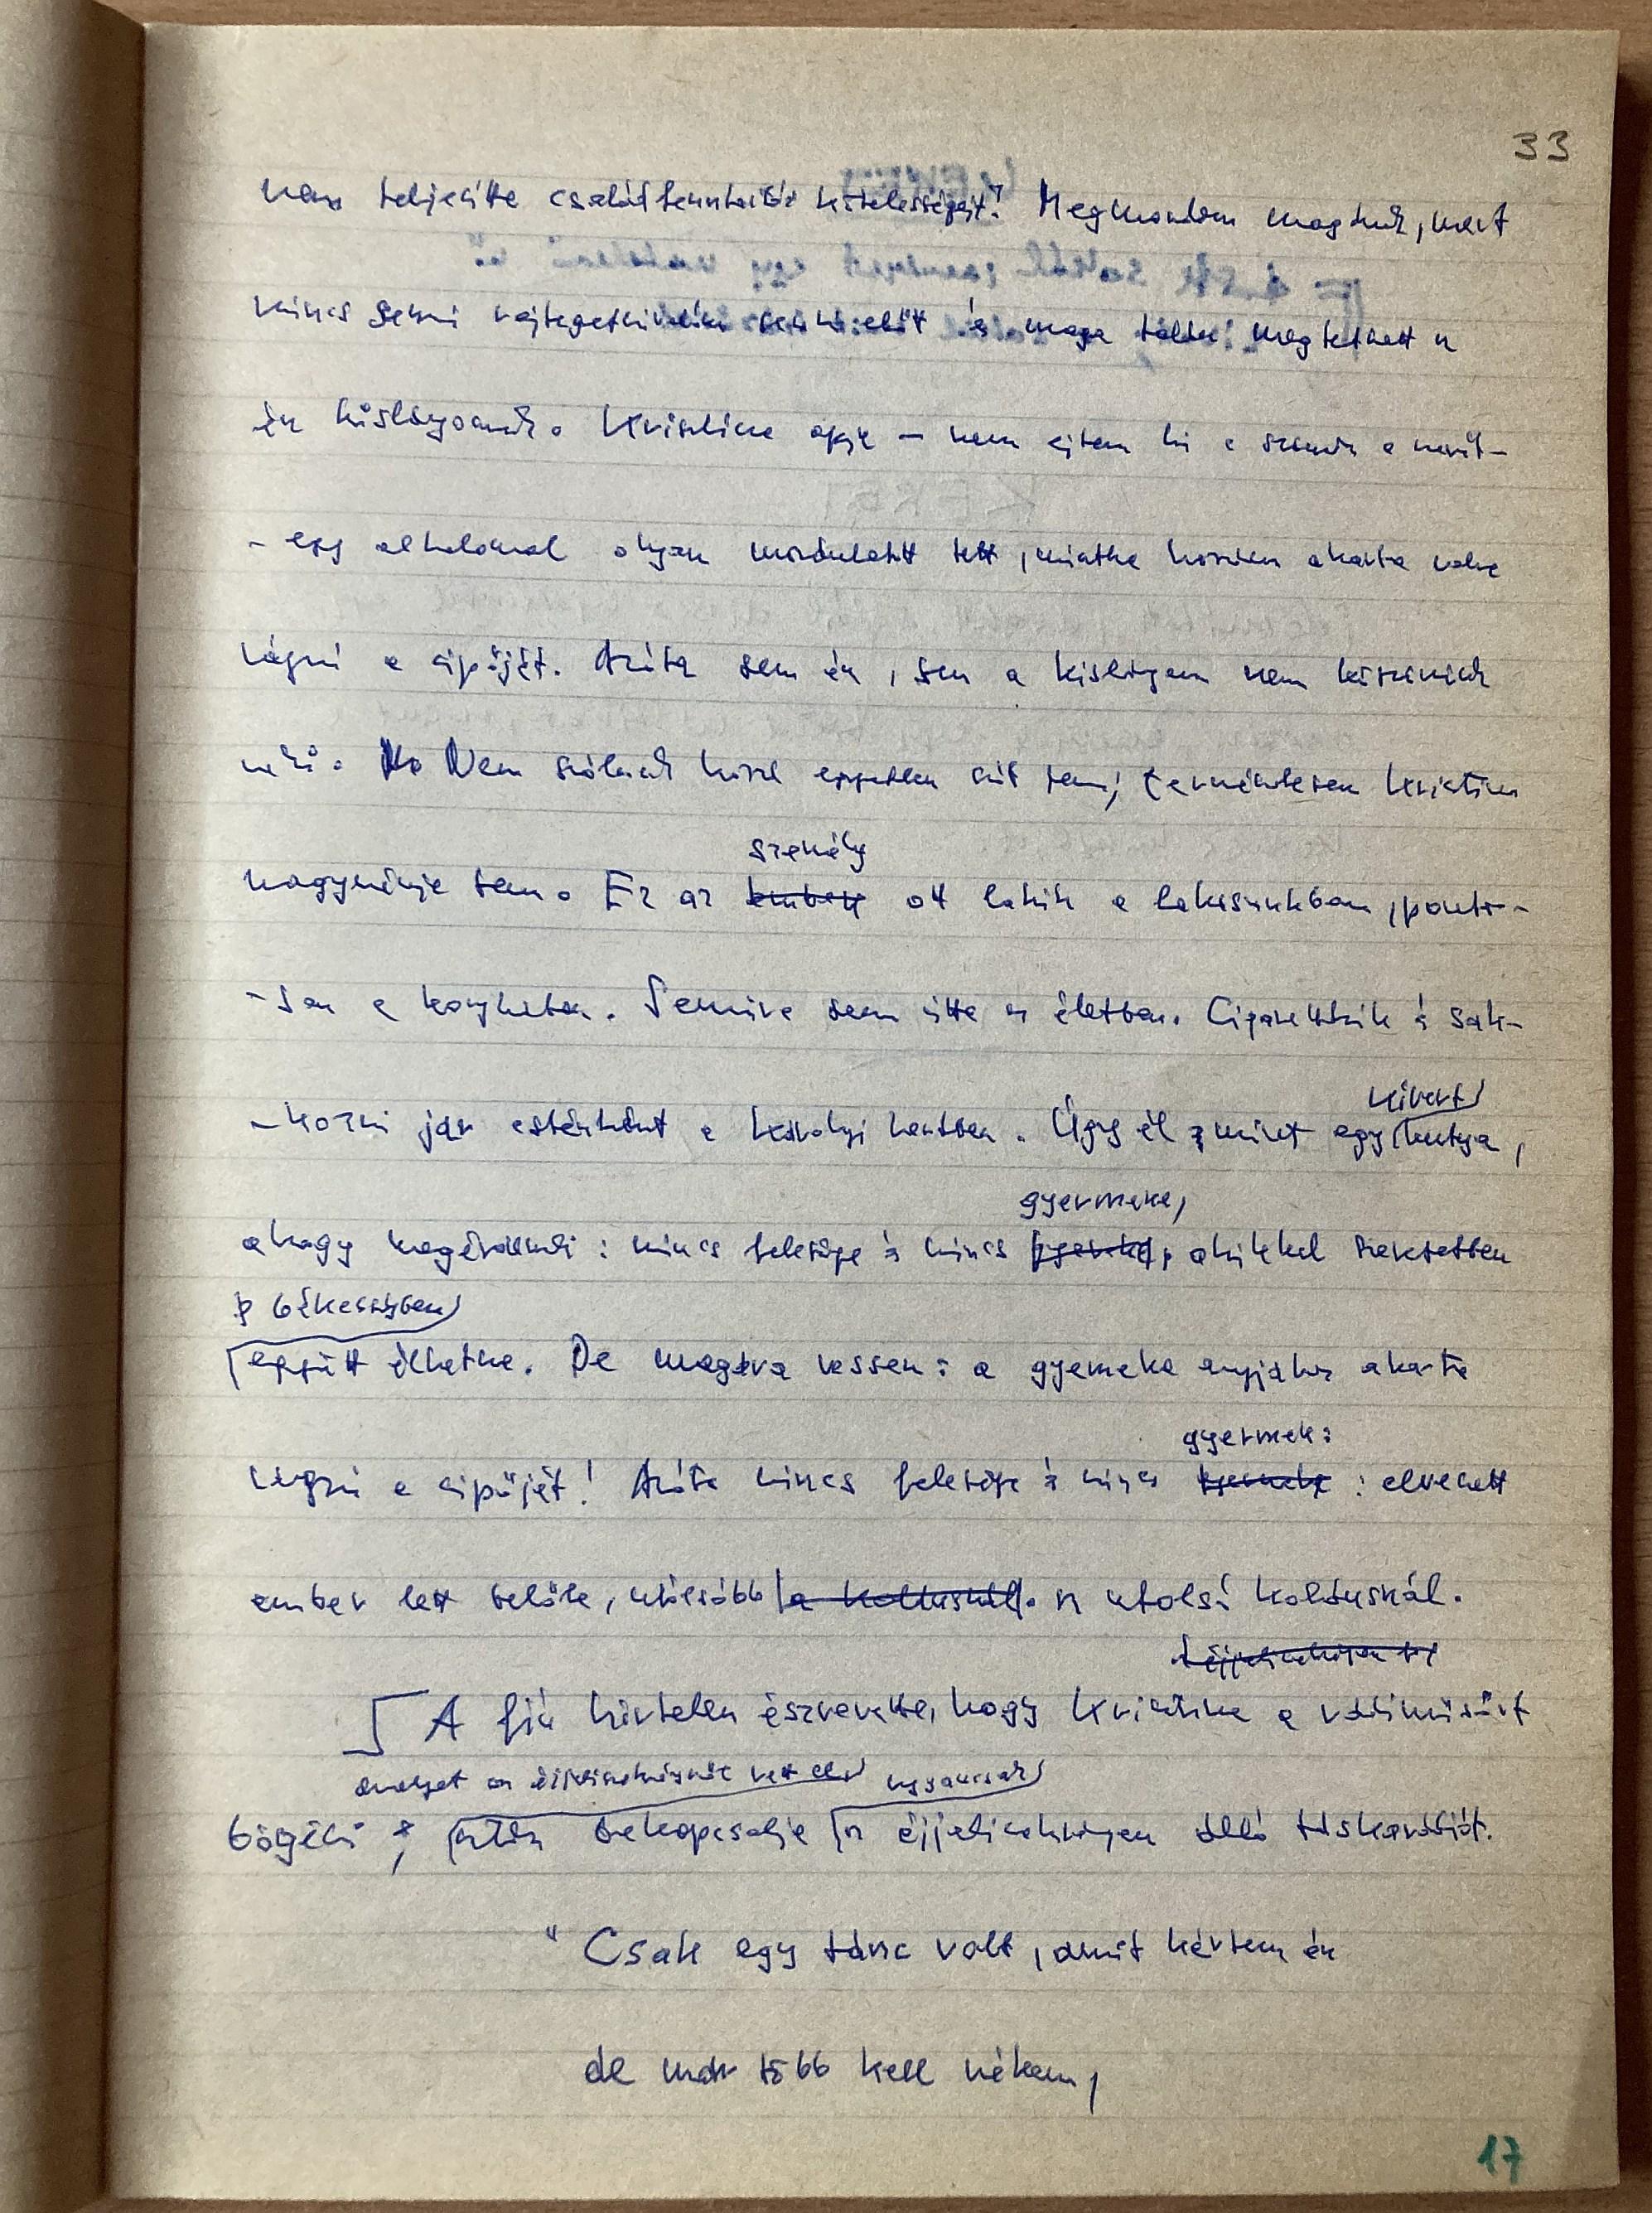 33
nem teljesítte családfenntartói kötelességét! Megmondom magának, mert
nincs semmi rejtegetnivalóm senki előtt és maga talán megtetszett az
én kislányomnak. Krisztina apja – nem ejtem ki a számon a nevét –
– egy alkalommal olyan mozdulatot tett, mintha hozzám akarta volna
vágni a cipőjét. Azóta sem én, sem a kislányom nem köszönünk
neki. Nem szólunk hozzá egyetlen szót sem; természetesen Krisztina
nagynénje sem. Ez az
személy
ember ott lakik a lakásunkban, ponto-
-san a konyhában. Semmire sem vitte az életben. Cigarettázik és sak-
-kozni jár esténként a Károlyi kertben. Úgy él, mint egy
kivert
kutya,
ahogy megérdemli: nincs felesége és nincs
gyermeke,
akikkel szeretetben
békességben
együtt élhetne. De magára vessen: a gyermeke anyjához akarta
vágni a cipőjét! Azóta nincs felesége és nincs
gyermeke:
elveszett
ember lett belőle, utolsóbb a koldusnál. az utolsó koldusnál.
A fiú hirtelen észrevette, hogy Krisztina a rádióműsort
böngészi;
amelyet az éjjeliszekrényről vett el
aztán bekapcsolja
ugyancsak
az éjjeliszekrényen álló táskarádiót.
"Csak egy tánc volt, amit kértem én
de már több kell nékem,
17